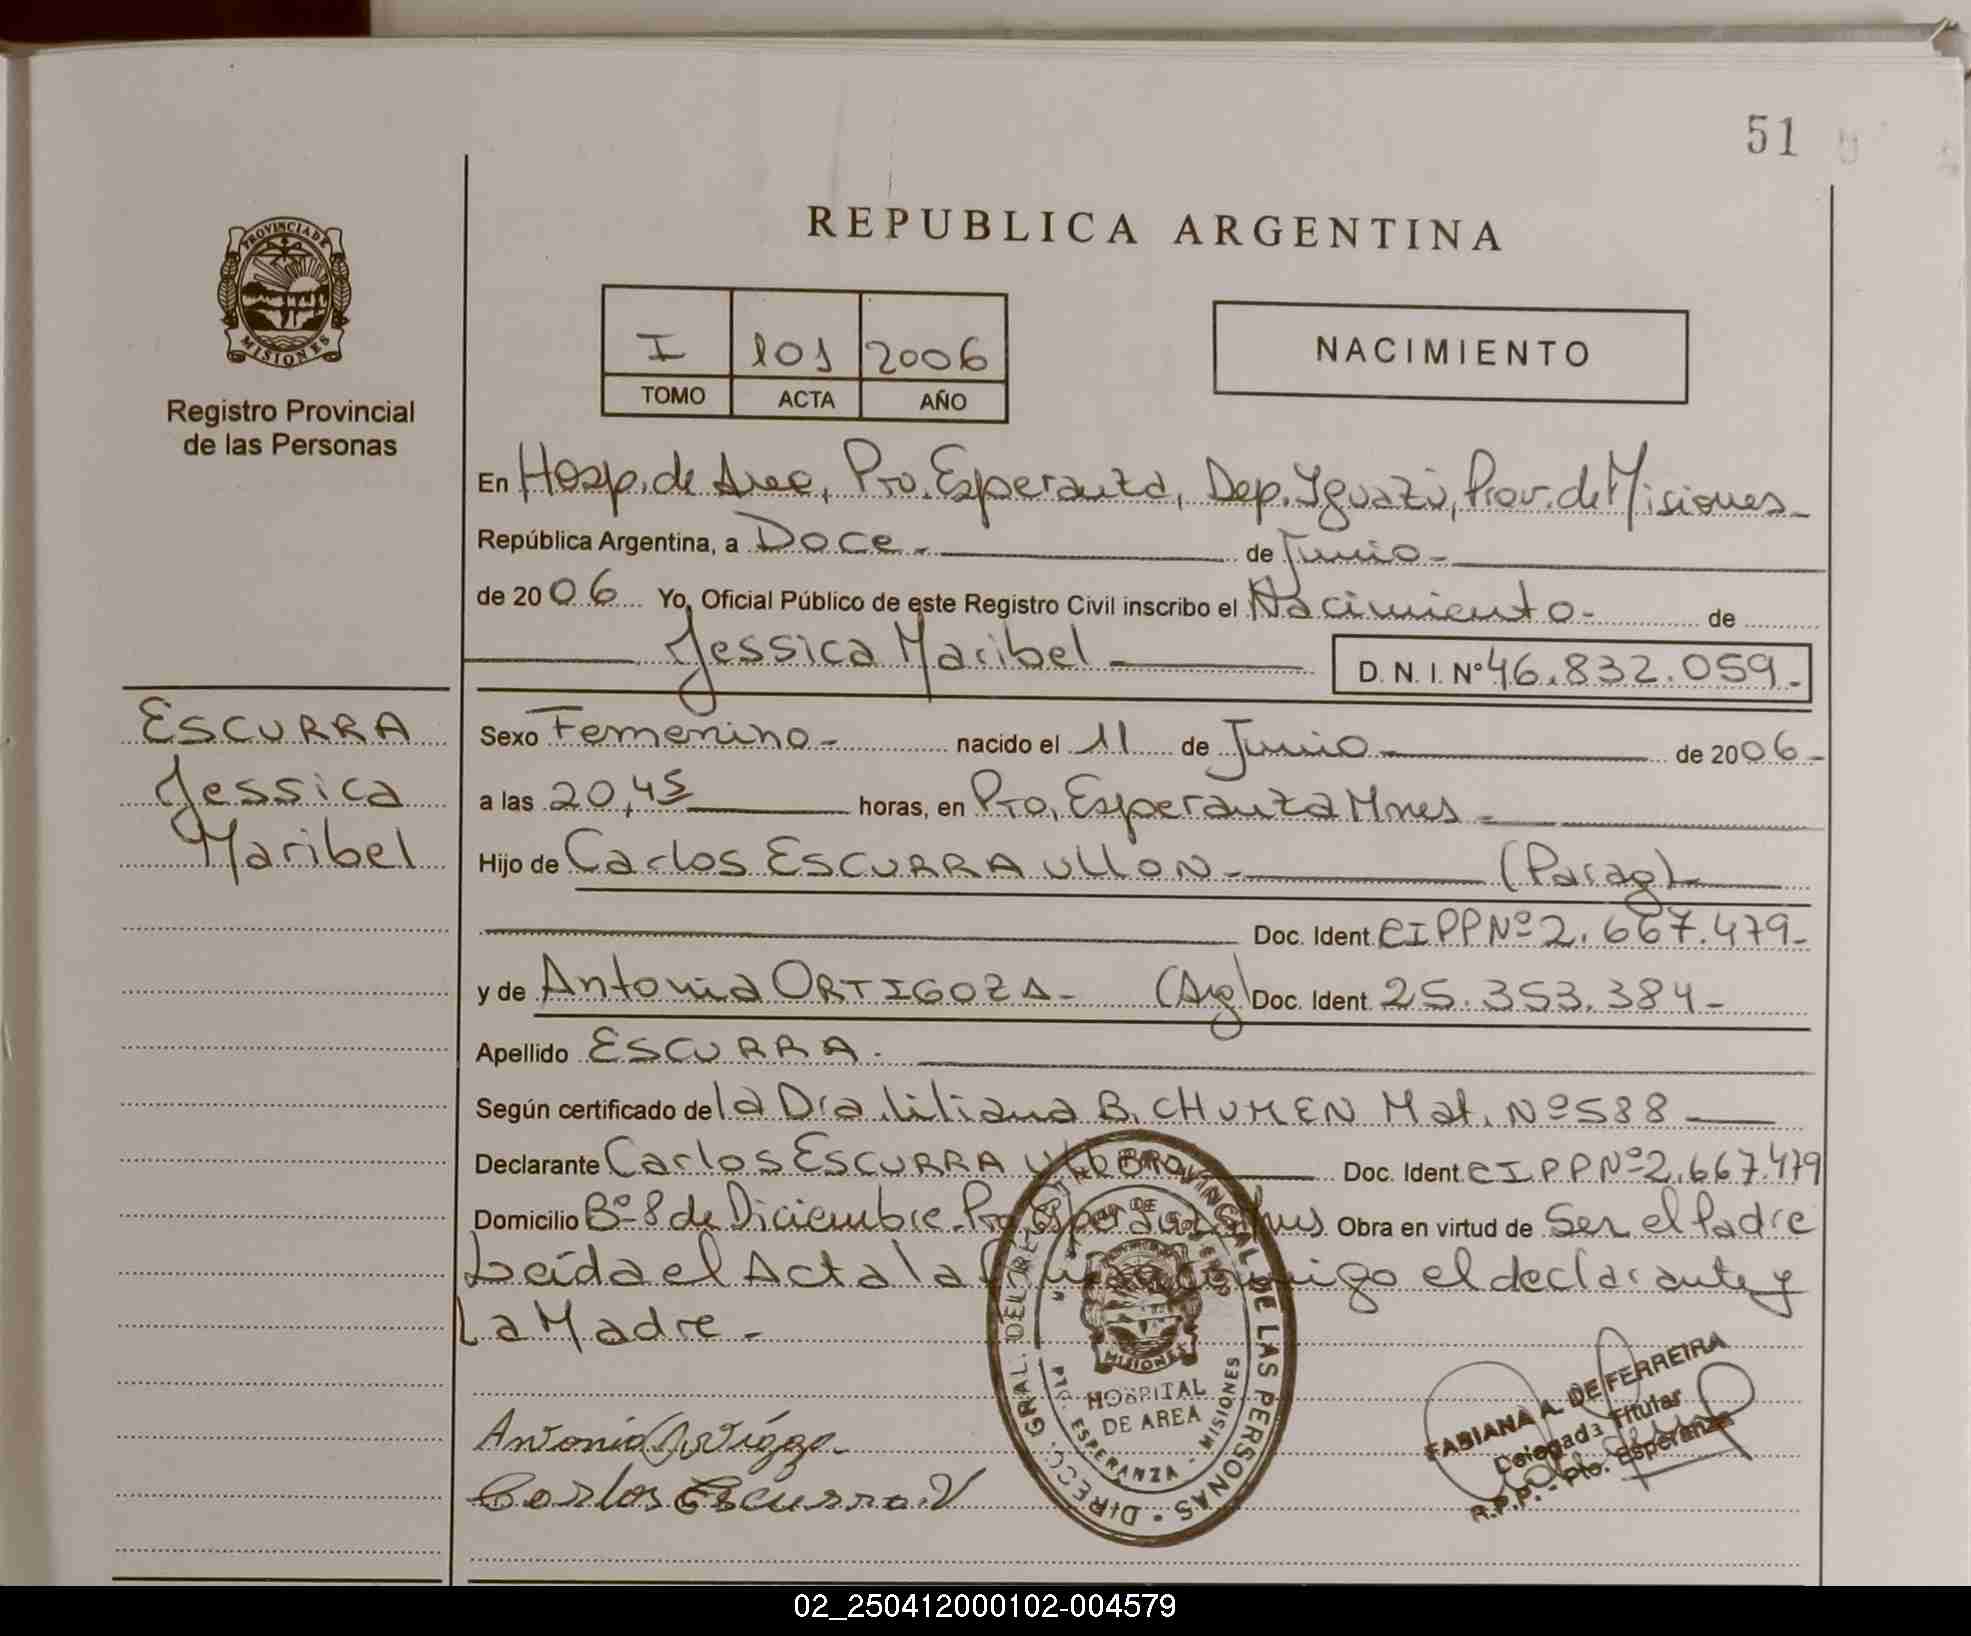 51
REPUBLICA ARGENTINA
PROVINCIA DE
MISIONES
Registro Provincial
de las Personas
I 101 2006
TOMO ACTA AÑO
NACIMIENTO
En Hosp. de Area, Pto. Esperanza, Dep. Iguazú, Prov. de Misiones-
República Argentina, a Doce.- de Junio-
de 2006 Yo, Oficial Público de este Registro Civil inscribo el Nacimiento- de
Jessica Maribel D. N. I. Nº 46.832.059-
ESCURRA
Jessica
Maribel
Sexo Femenino- nacido el 11 de Junio de 2006-
a las 20,45 horas, en Pto. Esperanza Mnes-
Hijo de Carlos ESCURRA ULLON- (Parag)-
Doc. Ident. CIPPNº 2.667.479-
y de Antonia ORTIGOZA- (Arg) Doc. Ident. 25.353.384-
Apellido ESCURRA.
Según certificado de la Dra. Liliana B. CHUMEN Mat. Nº 588
Declarante Carlos ESCURRA Doc. Ident. CIPPNº 2.667.479
Domicilio Bº 8 de Diciembre- Pto. Esperanza Mnes Obra en virtud de Ser el Padre
Leída el Acta la firma conmigo el declarante y
La Madre-
DIRECC. GRAL. DEL REG. PROVINCIAL DE LAS PERSONAS
MISIONES
HOSPITAL
DE AREA
PTO. ESPERANZA - MISIONES
Antonia Ortigoza
Carlos Escurra. U
FABIANA A. DE FERREIRA
Delegada Titular
R.P.P. - Pto. Esperanza
02_250412000102-004579